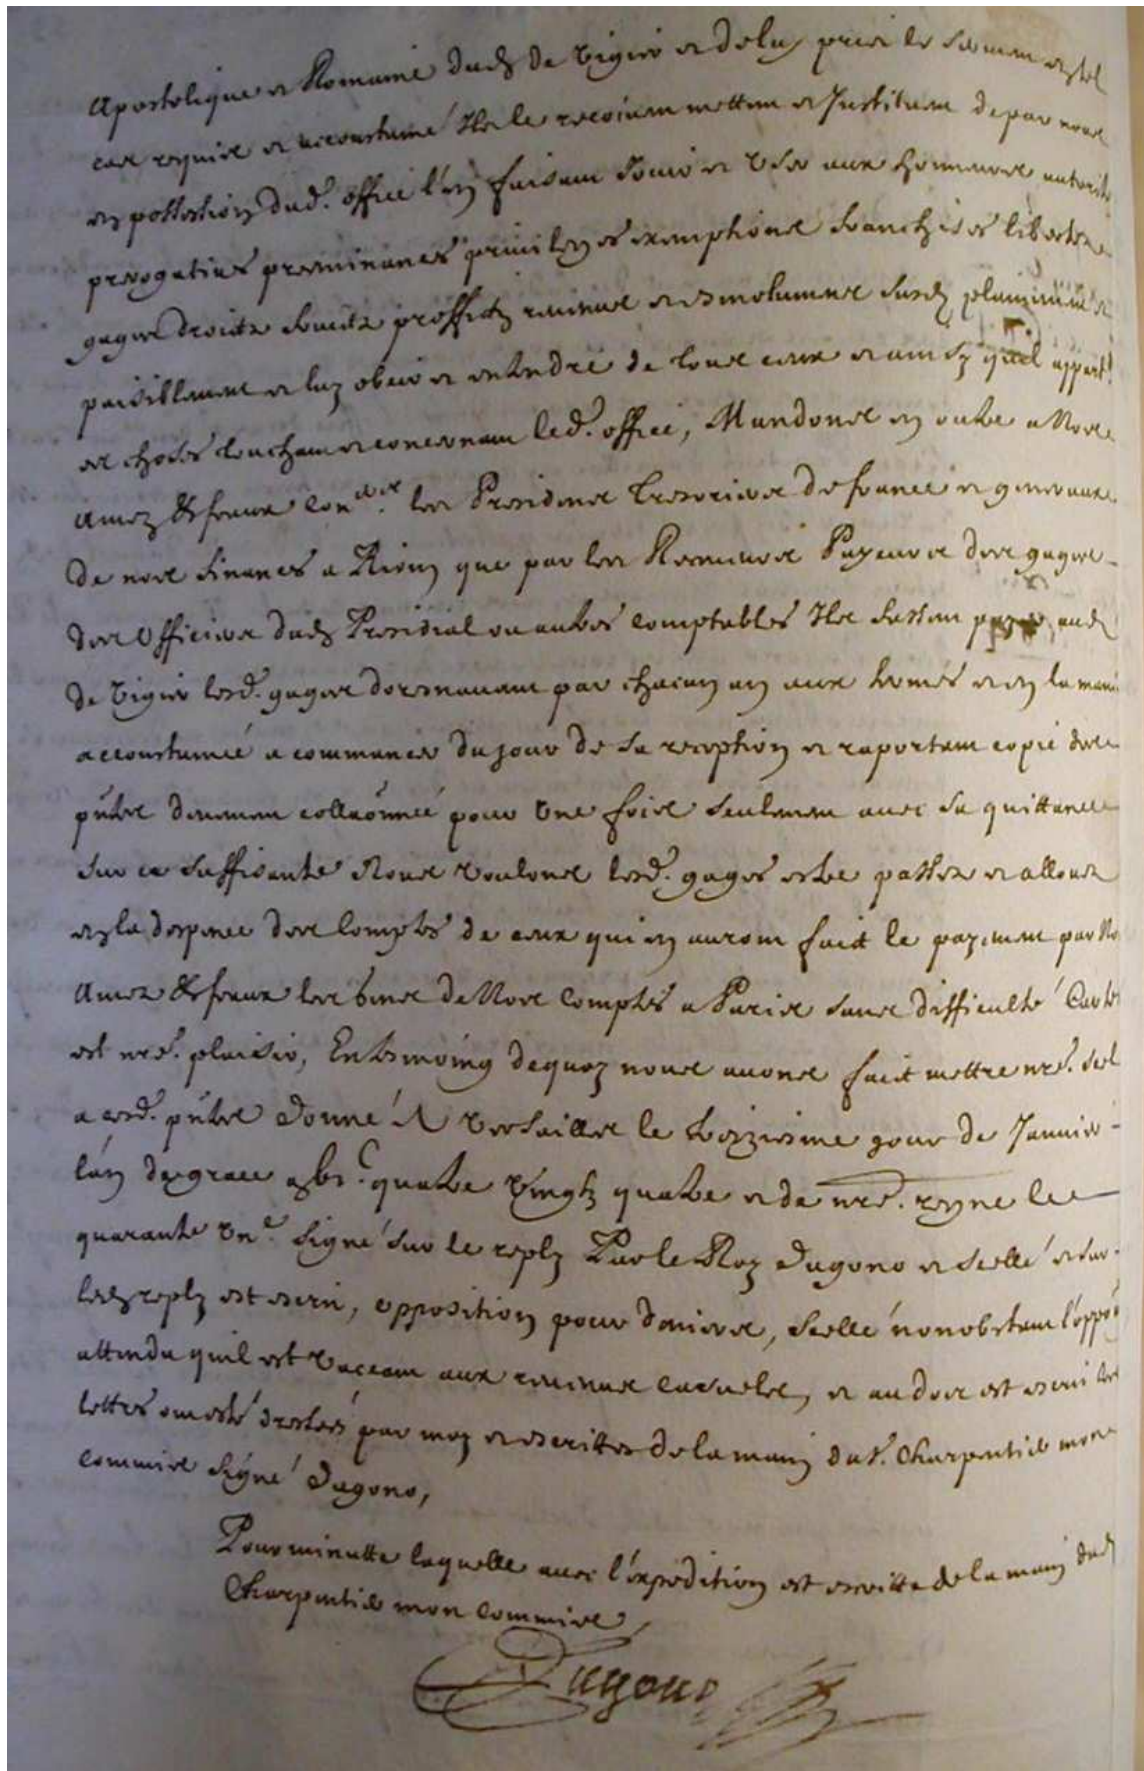 Apostolique et Romaine dud de Vigier et deluy pris le serment en tel
cas requis et accoustumé Ils le recoivent mettent et Instituent depar nous
en possession dud. office l'en faisant Jouir et User aux honneurs autorité
prerogatives preeminances privileges exemptions franchises libertez
gages droicts fruictz proffictz revenus et esmolumens susd plainement et
paisiblement et luy obeir et entendre de tous ceux et ainsy quil appart.
es choses touchant et concernant led. office, Mandons en outre a Nos
Amez & feaux con.ers les Presidens Tresoriers de france et generaux
de nos finances a Riom que par les Receveurs Payeurs des gages
des Officiers dud Presidial ou autres comptables Ils fassent payer aud
de Vigier lesd. gages doresnavant par chacun an aux termes et en la mani
accoustumée a commancer du jour de sa reception et raportant copie des
pntes deuement collaonnée pour Une fois seulement avec sa quittance
sur ce suffisante Nous voulons lesd. gages estre passez et allouez
en la despence des Comptes de ceux qui en auront faict le payement par No
Amez & feaux les Gens de Nos Comptes a Paris sans difficulté Car tel
est nre. plaisir, En tesmoing dequoy nous avons faict mettre nre. scel
a cesd. pntes Donné A Versailles le treiziesme jour de Janvier
l'an de grace gbi.c quatre Vingtz quatre et de nre. regne le
quarante Un.e Signé sur le reply Par le Roy Dugono et scellé et sur
led reply est escrit, opposition pour deniers, Scellé nonobstant l'oppón
attendu quil est vaccant aux revenus casuels, et au dos est escrit les
lettres ont esté dressées par moy et escrittes de la main du S. Charpentier mon
Commis Signé Dugono,
Pour minutte laquelle avec l'expedition est escritte de la main dud
Charpentier mon Commis
Dugono